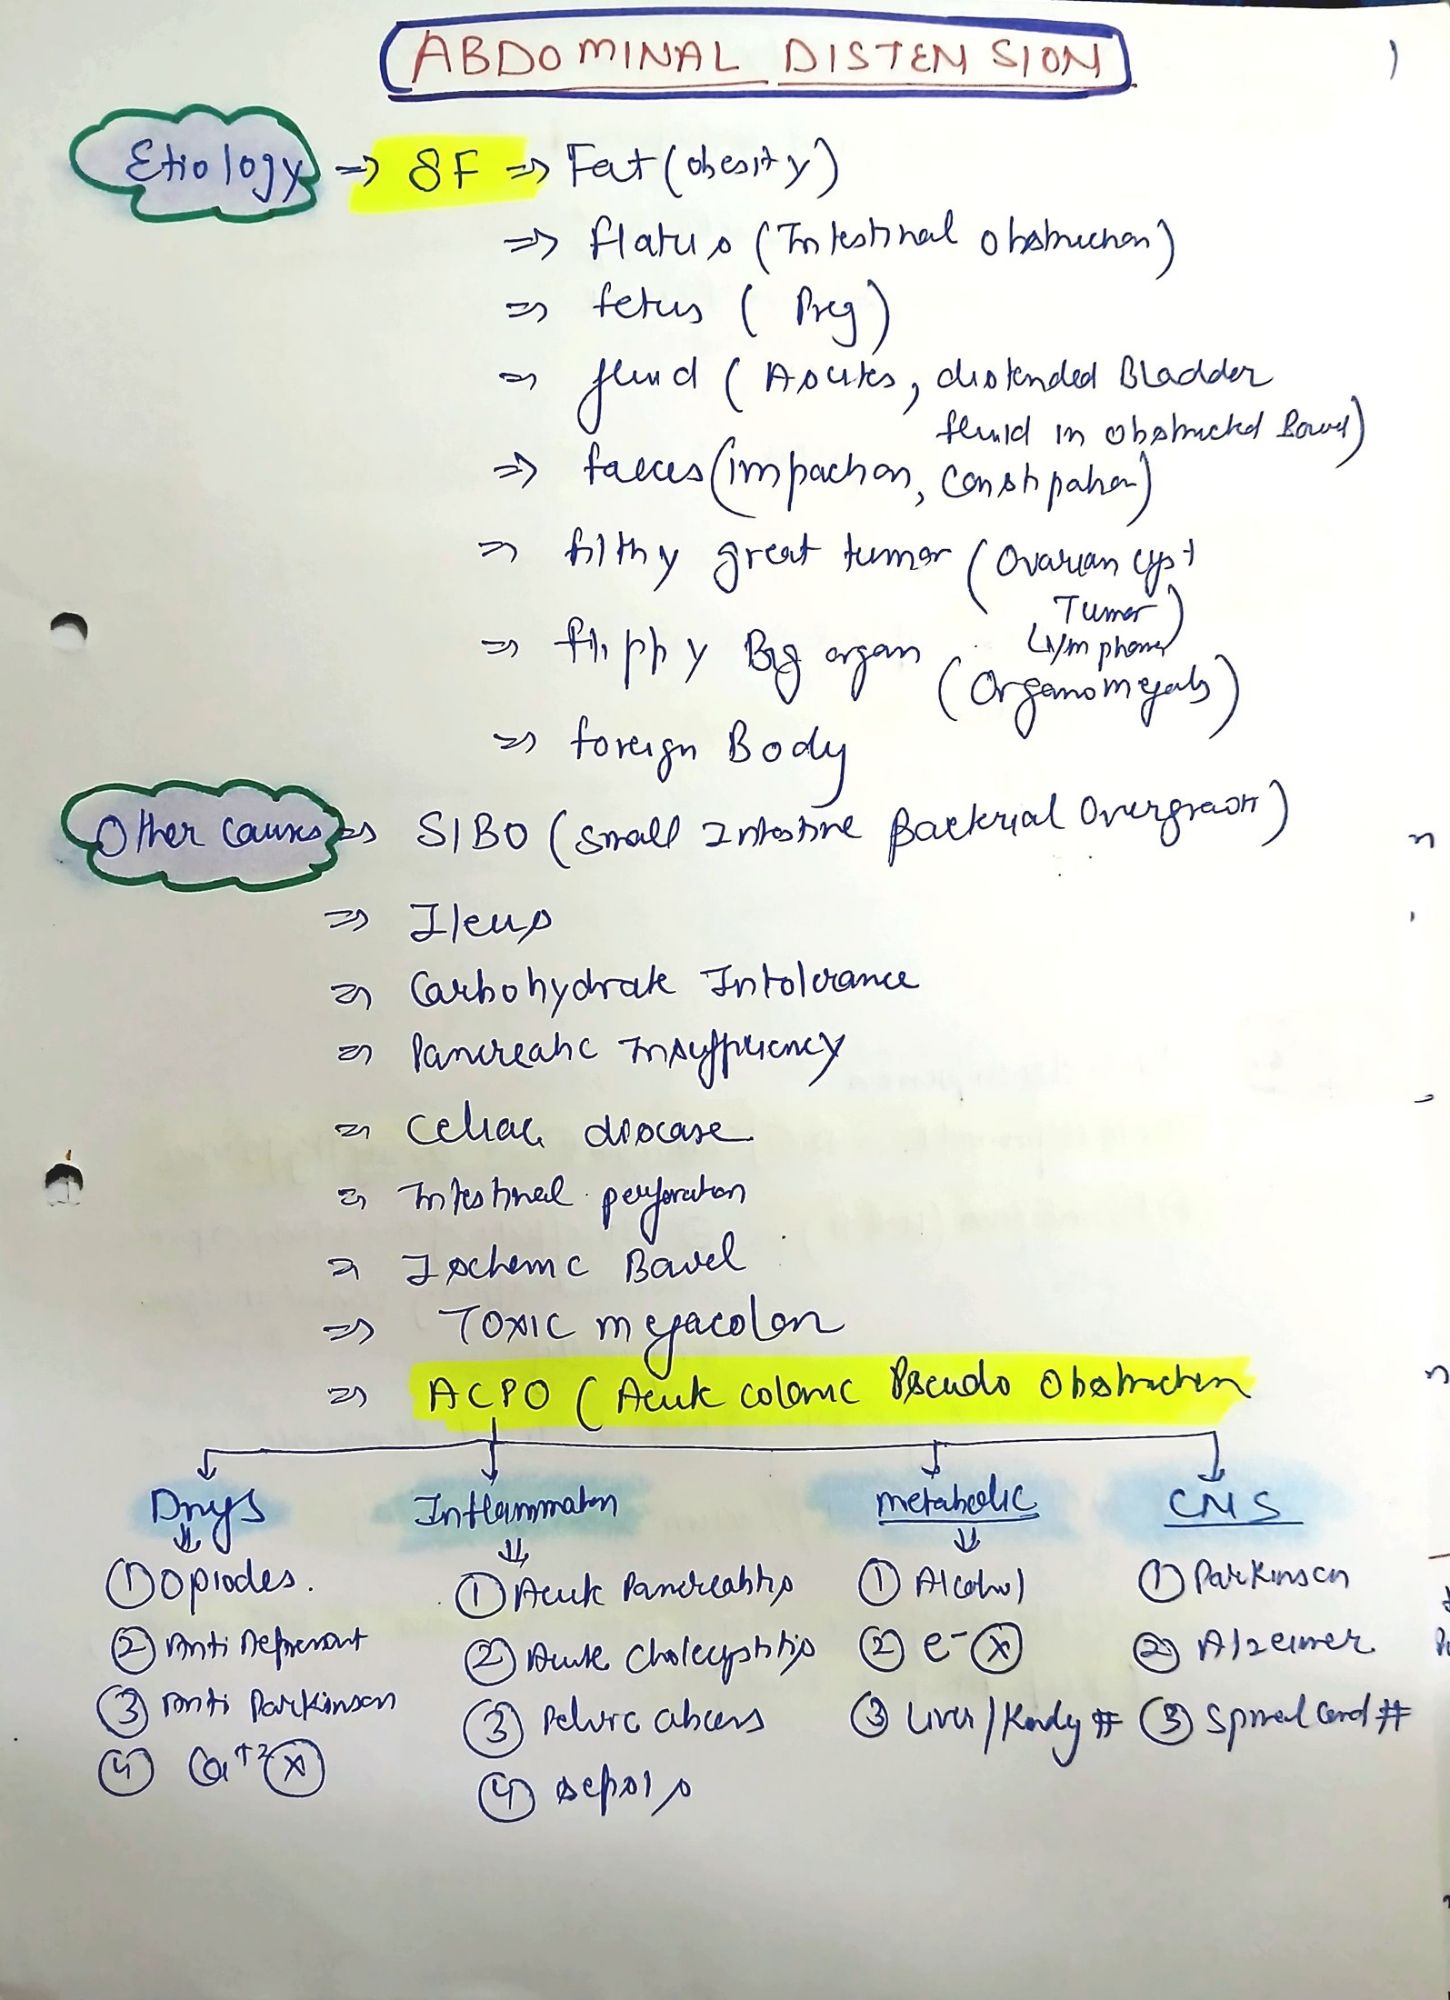 ABDOMINAL DISTENSION
1
Etiology => 8F => Fat (obesity)
=> flatus (Intestinal obstruction)
=> fetus ( Preg)
=> fluid ( Ascites, distended Bladder
fluid in obstructed Bowel)
=> faeces (impaction, constipation)
=> filthy great tumor (Ovarian cyst
Tumor)
Lymphoma
=> flippy Big organ (Organomegaly)
=> foreign Body
Other causes => SIBO (Small Intestine Bacterial Overgrowth)
=> Ileus
=> Carbohydrate Intolerance
=> Pancreatic Insufficiency
=> Celiac disease
=> Intestinal perforation
=> Ischemic Bowel
=> TOXIC megacolon
=> ACPO ( Acute colonic Pseudo Obstruction
Drugs Inflammation metabolic CNS
① Opiodes. ① Acute Pancreatitis ① Alcohol ① Parkinson
② Anti Depressant ② Acute Cholecystitis ② e⁻ ⓧ ② Alzeimer
③ Anti Parkinson ③ Pelvic abcess ③ Liver/Kindy # ③ Spinal Cord #
④ Ca⁺² ⓧ ④ sepsis